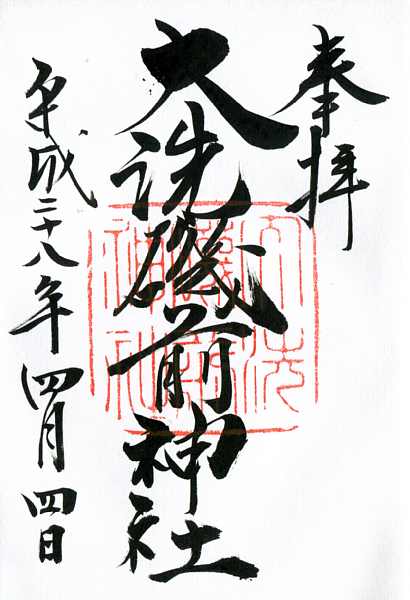 奉拝
大洗磯前神社
平成二十八年四月四日
大洗
磯前
神社